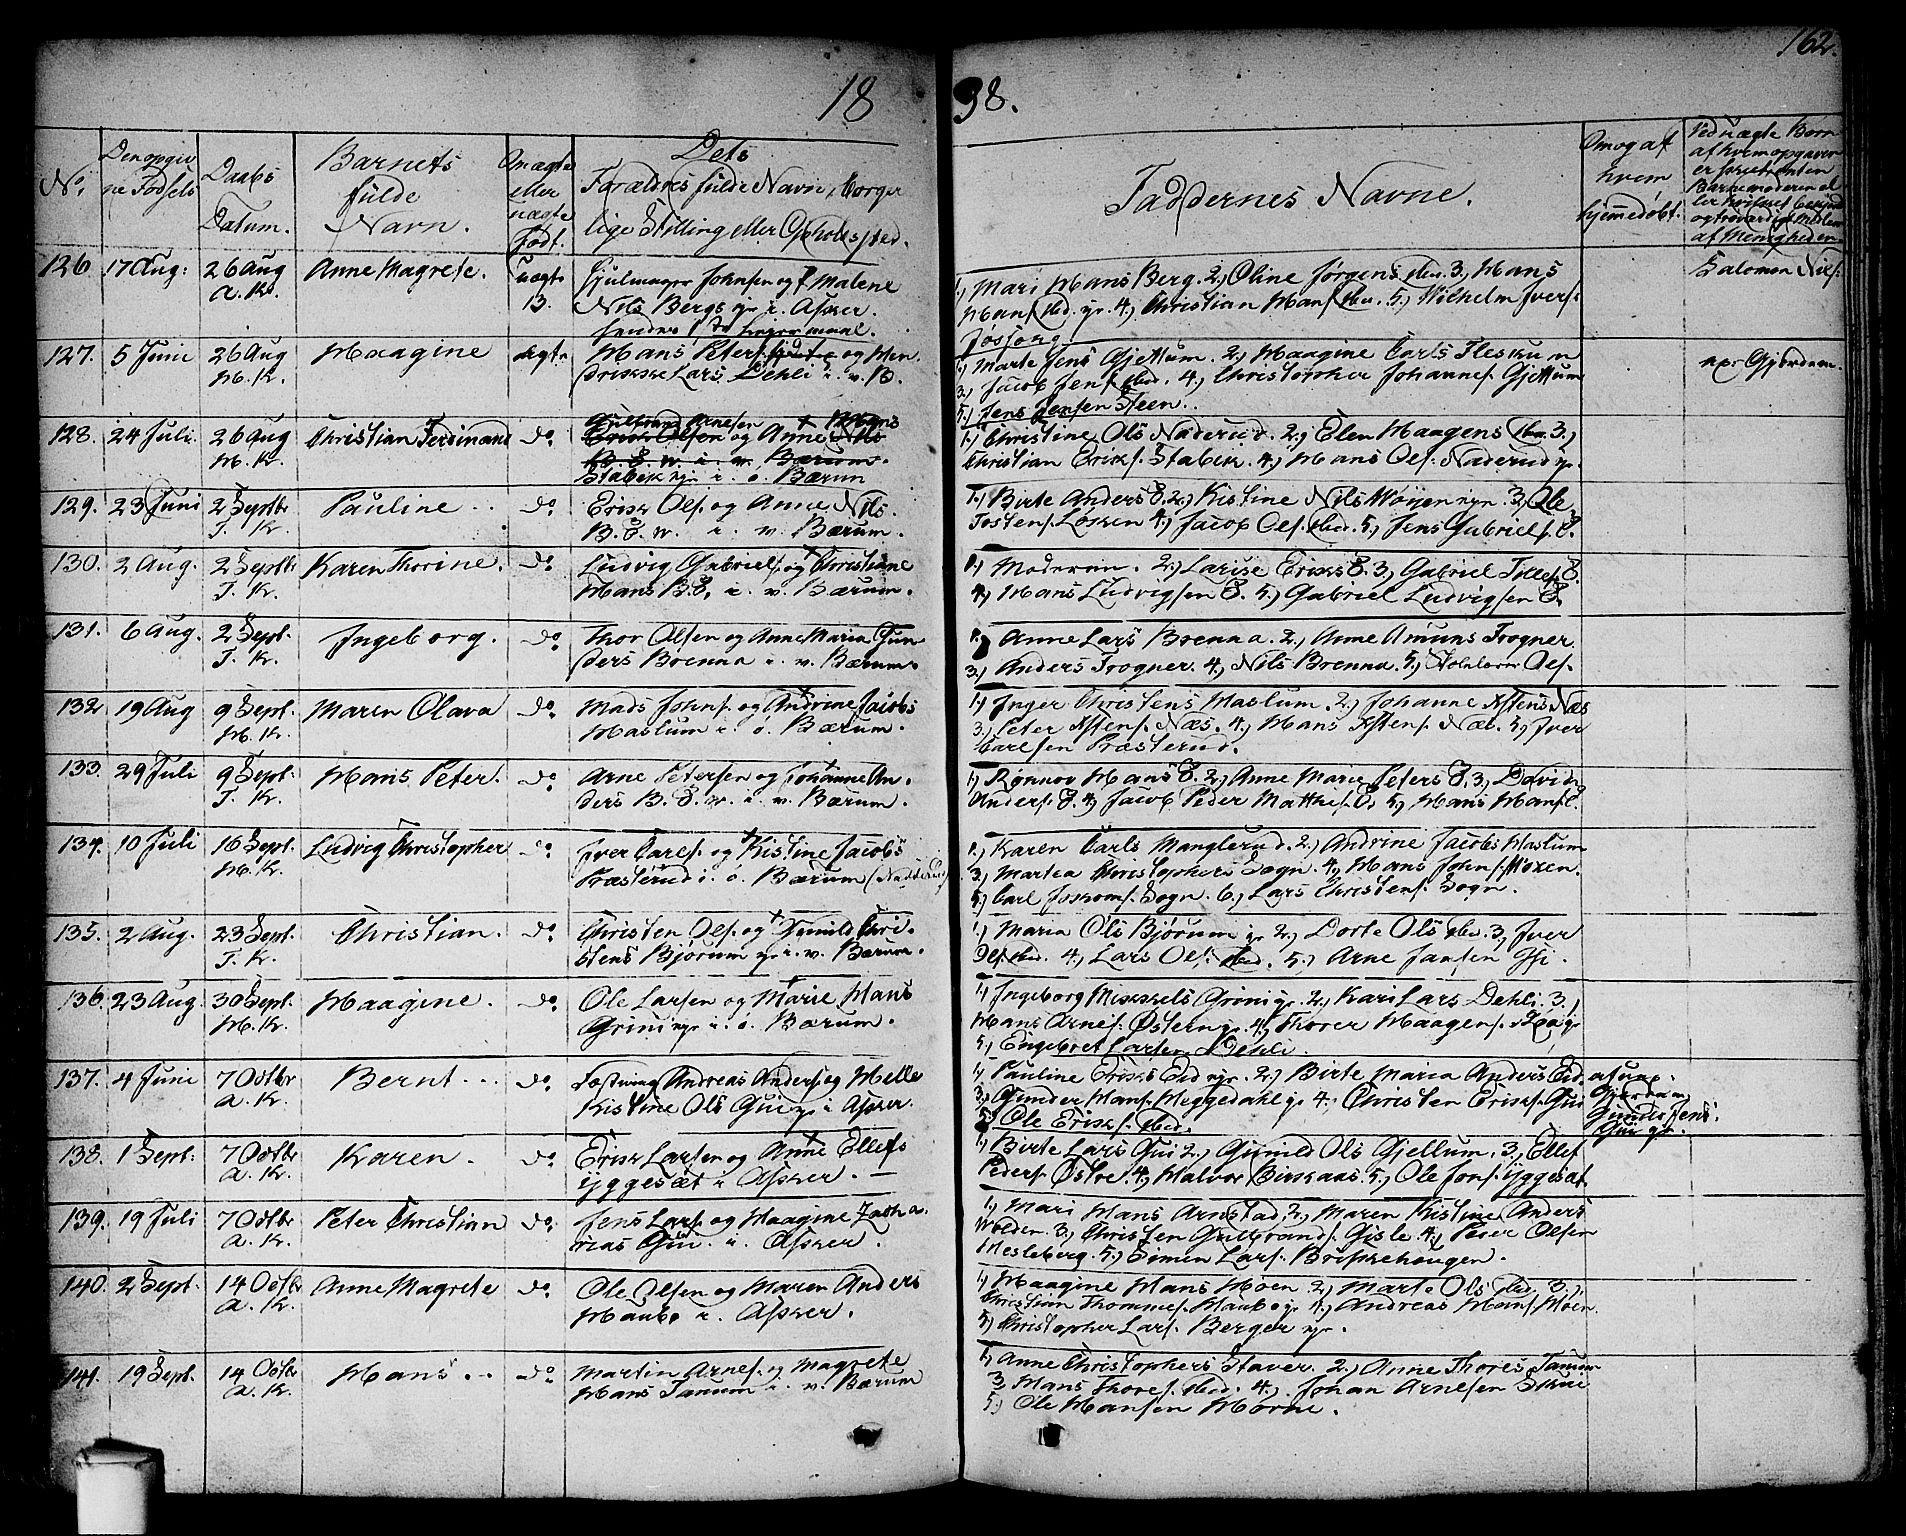 162.
18 38.
No.
Den opgiv
ne Fødsels
Daabs
Datum.
Barnets
fulde
Navn.
Om ægte
eller
uægte
født.
Dets
Forældres fulde Navne, borger
lige Stilling eller Opholdssted.
Faddernes Navne.
Om og af
hvem
hjemmedøbt.
Ved uægte Børn
af hvem opgaven
er foretrukken
126 17 Aug: 26 Aug Anne Magrete. uægte
A. K. 13.
Johnsen og Malene
Nils Bergs gr i. Asker.
1.) Mari Hans Berg. 2.) Oline Jørgens ibd. 3.) Hans
Hans. ibd. gr. 4.) Christian Hans. ibd. 5.) Wilhelm Ivers.
Salomon Nils.
127. 5 Juni 26 Aug Haagine ægte
H. K.
Hans Peter og Hen
Lars Dehli i. v. B.
1.) Marte Jens Gjettum. 2.) Haagine Carls Fleskum
3.) Jacob Jens. ibd. 4.) Christopher Johannes. Gjettum
5.) Jens Jensen Steen.
128. 24 Juli. 26 Aug Christian Ferdinand do.
H. K.
Gulbrand Arnesen Hans
Erik Olsen og Anne Nils
B. E. w. i. v. Bærum.
Stabek gr i. ø. Bærum
1.) Christine Ols Naderud. 2.) Elen Haagens ibd. 3.)
Christian Eriks. Stabek. 4.) Hans Ols. Naderud gr.
129. 23 Juni 2 Septbr Pauline do.
T. K.
Erik Ols. og Anne Nils.
B. E. w. i. v. Bærum.
1.) Birte Anders E. 2.) Kistine Nils Wøyen gr. 3.) Ole
Tostens. Løkken 4.) Jacob Ols. ibd. 5.) Jens Gabriels. E.
130. 2 Aug. 2 Septbr. Karen Thorine. do.
T. K.
Ludvig Gabriels. og Christiane
Hans B. E. i. v. Bærum.
1.) Moderen. 2.) Larise Eriks E. 3.) Gabriel Tolles. E.
4.) Hans Ludvigsen E. 5.) Gabriel Ludvigsen E.
131. 6 Aug. 2 Sept. Ingeborg. do
T. K.
Thor Olsen og Anne Maria Gun
ders Brenna i. v. Bærum.
1.) Anne Lars Brenna. 2.) Anne Amuns Trogner.
3.) Anders Trogner. 4.) Nils Brenna. 5.) Ols.
132 19 Aug 9 Sept. Maren Olava do.
H. K.
Mads Johns. og Andrine Jacobs
Haslum i. ø. Bærum.
1.) Inger Christens Haslum. 2.) Johanne Astens Næs
3.) Peter Astens. Næs. 4.) Hans Astens. Næs. 5.) Iver
Carlsen Præsterud.
133. 29 Juli 9 Sept. Hans Peter. do
T. K.
Arne Petersen og Johanne An
ders B. E. w. i. v. Bærum.
1.) Rønnov Hans E. 2.) Anne Marie Peters E. 3.) David
Anders. E. 4.) Jacob Peder Matthis. E. 5.) Hans Hans. E.
134. 10 Juli 16 Sept. Ludvig Christopher do.
H. K.
Iver Carls. og Kistine Jacobs
Præsterud i. ø. Bærum (Nadderud)
1.) Karen Carls Manglerud. 2.) Andrine Jacobs Haslum
3.) Martea Christophers Sogn. 4.) Hans Johns.
5.) Carl Sogn. 6.) Lars Christens. Sogn.
135. 2 Aug. 23 Sept. Christian. do.
T. K.
Christen Ols. og Gunild Chri
stens Bjørum gr i. v. Bærum.
1.) Maria Ols Bjørum gr 2.) Dorte Ols ibd. 3.) Iver
Ols. ibd. 4.) Lars Ols. ibd. 5.) Arne Jansen
136. 23 Aug. 30 Sept. Haagine. do.
H. K.
Ole Larsen og Marie Hans
Grini gr i. ø. Bærum.
1.) Ingeborg Mikkels Grini gr. 2.) Kari Lars Dehli. 3.)
Hans Arnes. Østern gr. 4.) Thorer Haagens.
5.) Engebret Larsen Dehli.
137. 4 Juni 7 Octbr Bernt do.
A. K.
Andreas Anders. og Helle
Kistine Ols Gui gr i Asker.
1.) Pauline Eriks Eid gr. 2.) Birte Maria Anders Eid.
3.) Gunder Hans. Heggedahl gr 4.) Christen Eriks. Gui
5.) Ole Eriks. ibd.
Gui gr.
138. 1 Sept: 7 Octbr Karen. do.
A. K.
Erik Larsen og Anne Ellefs
Yggesæt i Asker.
1.) Birte Lars Gui 2.) Gunild Ols Gjellum. 3.) Ellef
Peders. Østre. 4.) Halvor Birkaas. 5.) Ole Jons. Yggesæt
139. 19 Juli 7 Octbr Peter Christian do.
A. K.
Jens Lars. og Haagine Zacha
rias Gui. i. Asker.
1.) Mari Hans Arnstad 2.) Maren Kistine Anders
Wolden. 3.) Christen Gulbrands. Gisle. 4.) Peter Olsen
Hesleberg. 5.) Simen Lars. Briskehougen.
140. 2 Sept. 14 Octbr Anne Magrete do.
A. K.
Ole Olsen og Maren Anders
Haubo i. Asker.
1.) Haagine Hans Moen. 2.) Marte Ols ibd. 3.)
Christian Thommes. Haubo gr. 4.) Andreas Hans. Moen.
5.) Christopher Lars. Berger gr.
141. 19 Sept. 14 Octbr Hans do.
A. K.
Martin Arnes. og Magrete
Hans Tanum i. v. Bærum
1.) Anne Christophers Staver. 2.) Anne Thores Tanum
3.) Hans Thores. ibd. 4.) Johan Arnesen Skui
5.) Ole Hansen Horne.